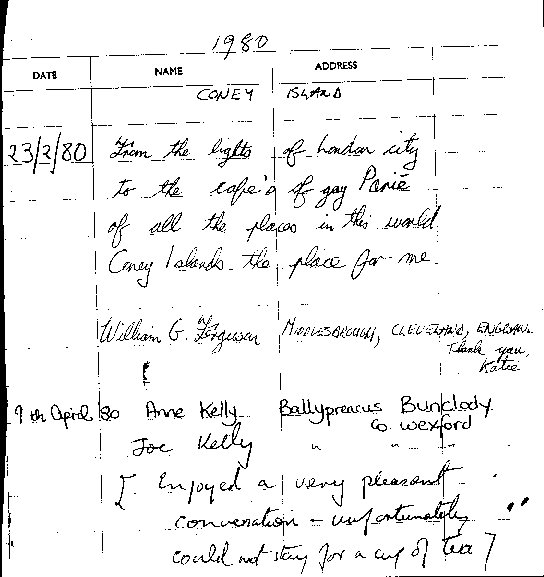 1980
DATE NAME ADDRESS
CONEY ISLAND
23/2/80 From the lights of London city
to the cafe's of gay Parie
of all the places in this world
Coney Islands the place for me.
William G. Ferguson MIDDLESBROUGH, CLEVELAND, ENGLAND
Thank you,
Katie
9th April 80 Anne Kelly Ballypreacus Bunclody
Co. Wexford
Joe Kelly " " "
[ Enjoyed a very pleasant
converation - unfortunately
could not stay for a cup of tea ]